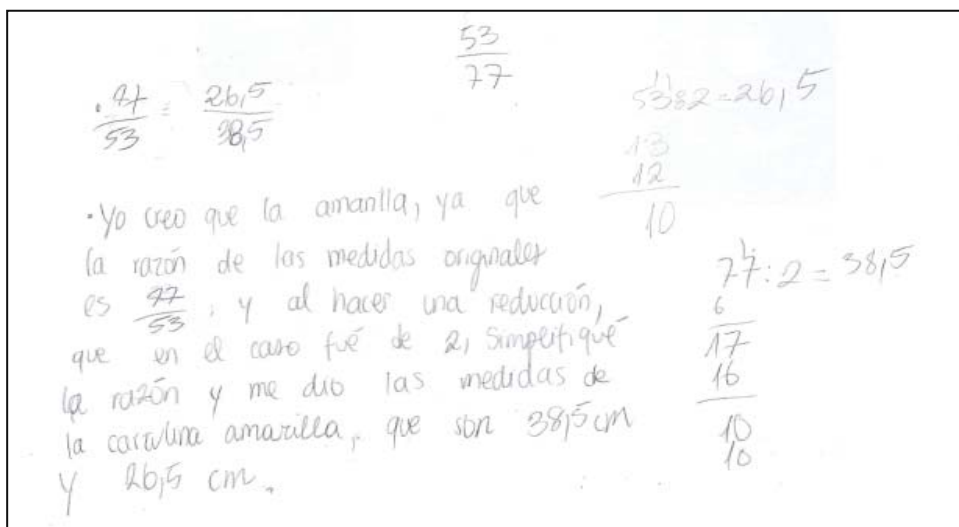 53
77
. 77 = 26,5
53 38,5
53:2=26,5
13
12
10
• Yo creo que la amarilla, ya que
la razón de las medidas originales
es 77/53, y al hacer una reducción,
que en el caso fué de 2, simplifiqué
la razón y me dio las medidas de
la cartulina amarilla, que son 38,5 cm
y 26,5 cm.
77:2=38,5
6
17
16
10
10